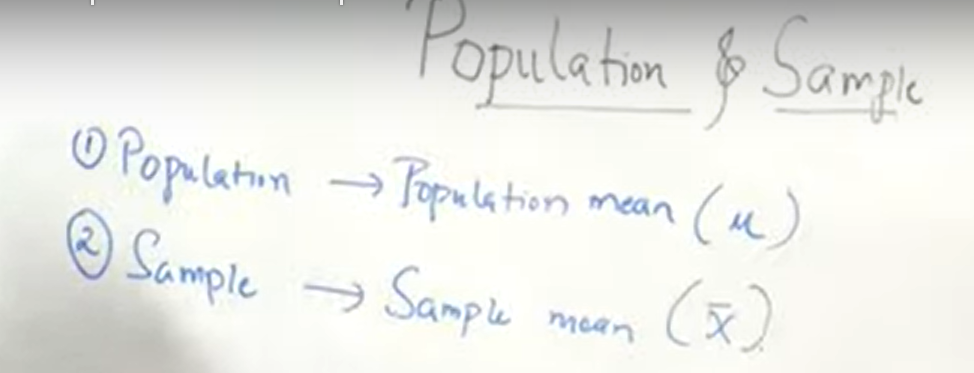 Population & Sample
① Population → Population mean (μ)
② Sample → Sample mean (x̄)